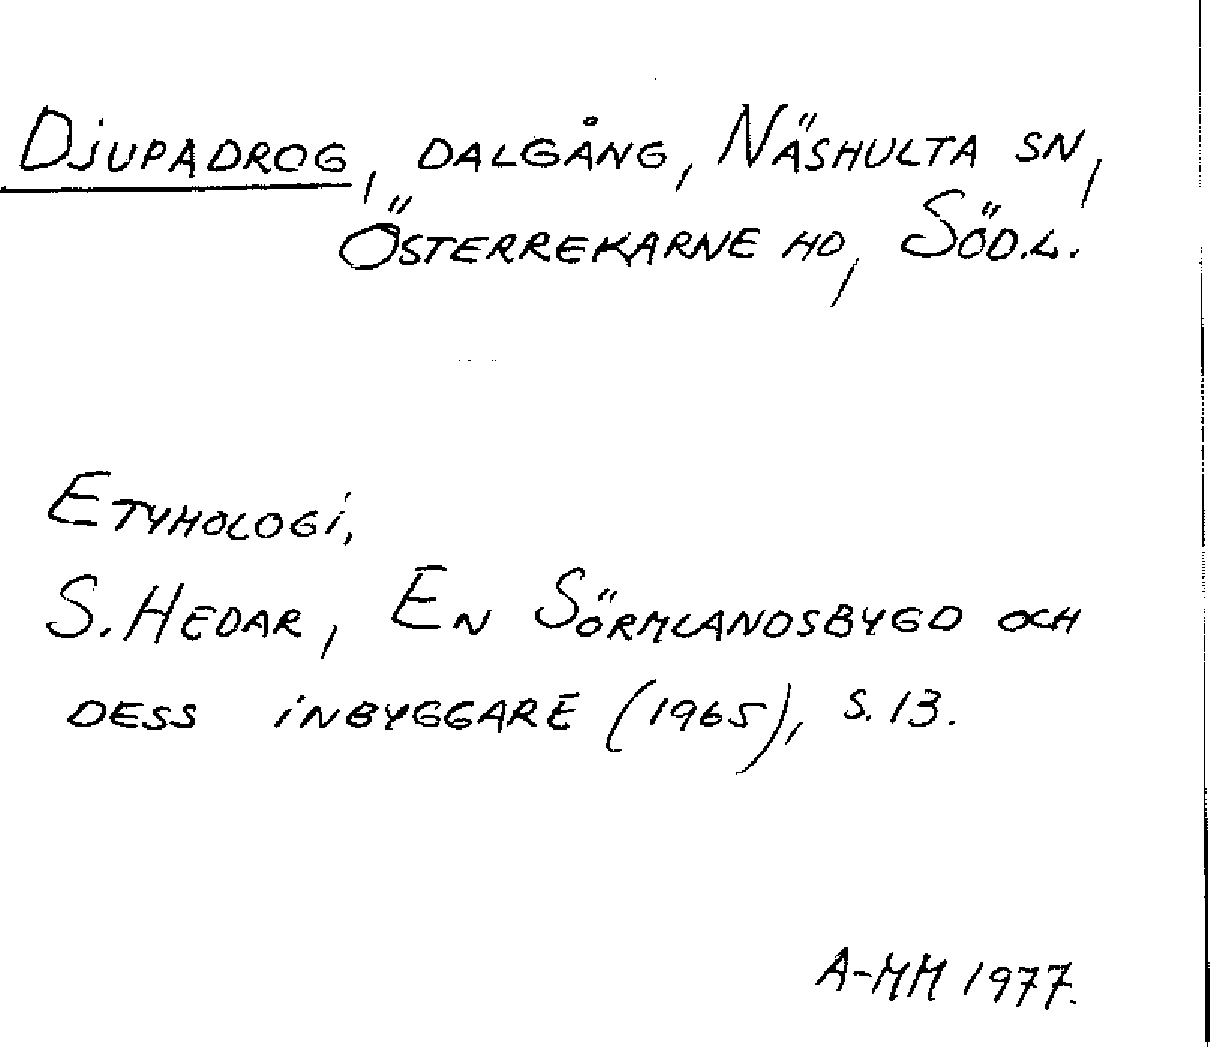 Djupadrog, dalgång, Näshulta sn,
Österrekarne hd, Söd.l.
Etymologi.
S. Hedar, En Sörmlandsbygd och
dess inbyggare (1965), s. 13.
A-MM 1977.